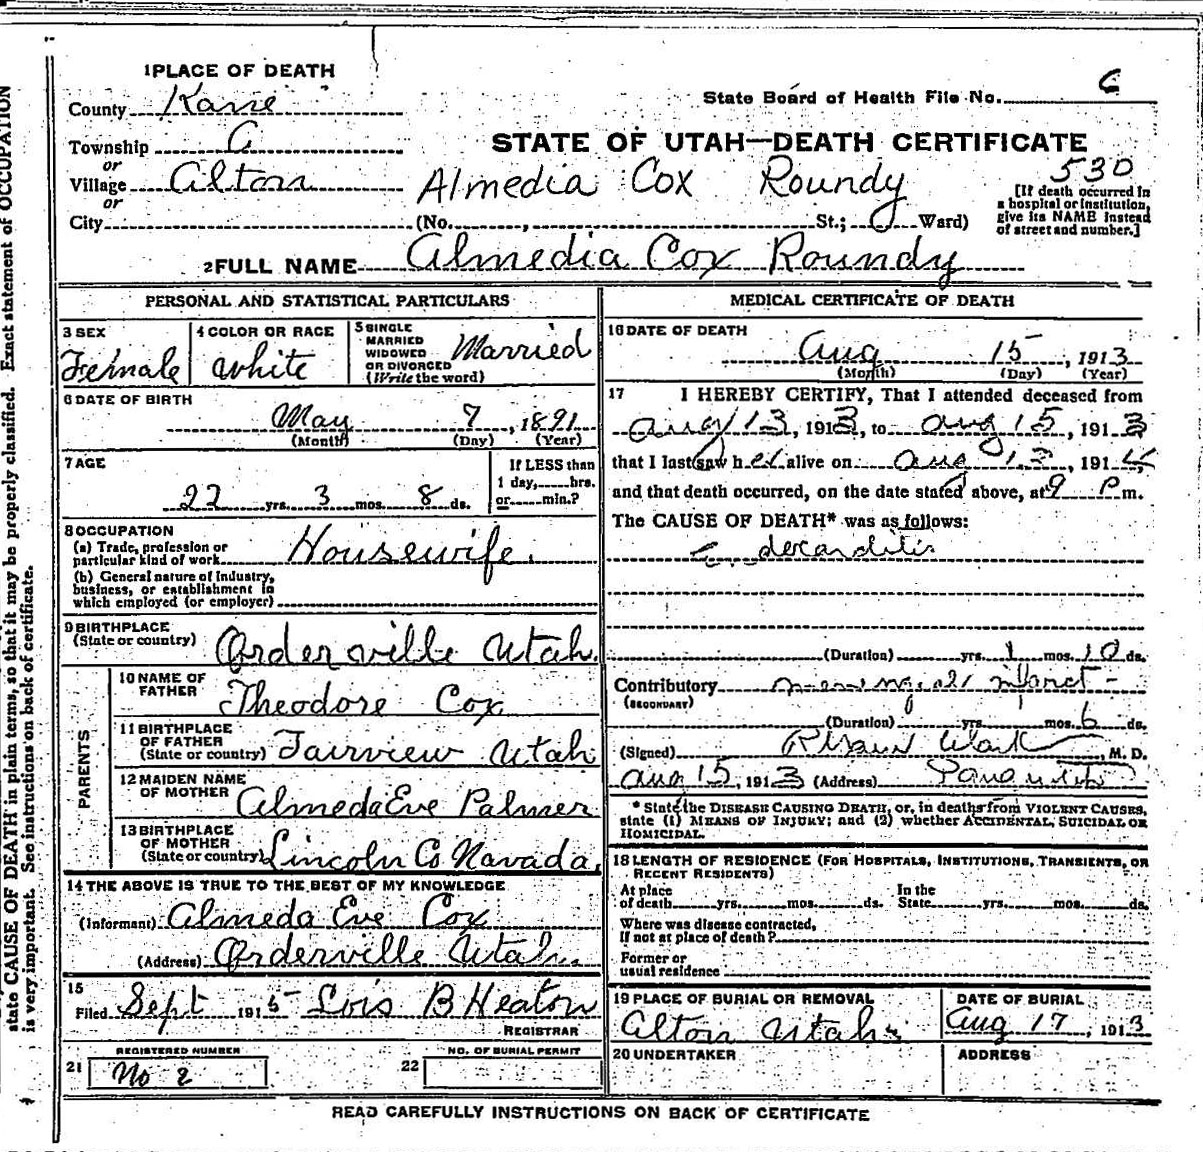 1 PLACE OF DEATH
County Kane
State Board of Health File No. 6
Township
or
STATE OF UTAH—DEATH CERTIFICATE
530
Village Alton
or
Almedia Cox Roundy
City
(No. , St.; Ward)
[If death occurred in
a hospital or institution,
give its NAME instead
of street and number.]
2 FULL NAME Almedia Cox Roundy
PERSONAL AND STATISTICAL PARTICULARS
3 SEX
Female
4 COLOR OR RACE
White
5 SINGLE
MARRIED
WIDOWED
OR DIVORCED
(Write the word)
Married
6 DATE OF BIRTH
May 7, 1891
(Month) (Day) (Year)
7 AGE
22 yrs. 3 mos. 8 ds.
If LESS than
1 day, hrs.
or min.?
8 OCCUPATION
(a) Trade, profession or
particular kind of work Housewife.
(b) General nature of Industry,
business, or establishment in
which employed (or employer)
9 BIRTHPLACE
(State or country) Orderville Utah.
PARENTS
10 NAME OF
FATHER Theodore Cox
11 BIRTHPLACE
OF FATHER
(State or country) Fairview Utah
12 MAIDEN NAME
OF MOTHER Almeda Eve Palmer
13 BIRTHPLACE
OF MOTHER
(State or country) Lincoln Co. Navada.
14 THE ABOVE IS TRUE TO THE BEST OF MY KNOWLEDGE
(Informant) Almeda Eve Cox
(Address) Orderville Utah.
15
Filed Sept 1915 Lois B Heaton
REGISTRAR
REGISTERED NUMBER
21 No 2
NO. OF BURIAL PERMIT
22
MEDICAL CERTIFICATE OF DEATH
16 DATE OF DEATH
Aug 15, 1913
(Month) (Day) (Year)
17 I HEREBY CERTIFY, That I attended deceased from
Aug 13, 1913, to Aug 15, 1913
that I last saw her alive on Aug 13, 191
and that death occurred, on the date stated above, at 9 P m.
The CAUSE OF DEATH* was as follows:
(Duration) yrs. 1 mos. 10 ds.
Contributory infarct
(SECONDARY)
(Duration) yrs. mos. 6 ds.
(Signed) Clark, M. D.
Aug 15, 1913 (Address) Panguitch
* State the DISEASE CAUSING DEATH, or, in deaths from VIOLENT CAUSES,
state (1) MEANS OF INJURY; and (2) whether ACCIDENTAL, SUICIDAL OR
HOMICIDAL.
18 LENGTH OF RESIDENCE (FOR HOSPITALS, INSTITUTIONS, TRANSIENTS, OR
RECENT RESIDENTS)
At place
of death yrs. mos. ds.
In the
State yrs. mos. ds.
Where was disease contracted,
If not at place of death?
Former or
usual residence
19 PLACE OF BURIAL OR REMOVAL
Alton Utah
DATE OF BURIAL
Aug 17, 1913
20 UNDERTAKER
ADDRESS
READ CAREFULLY INSTRUCTIONS ON BACK OF CERTIFICATE
state CAUSE OF DEATH in plain terms, so that it may be properly classified. Exact statement of OCCUPATION
is very important. See instructions on back of certificate.